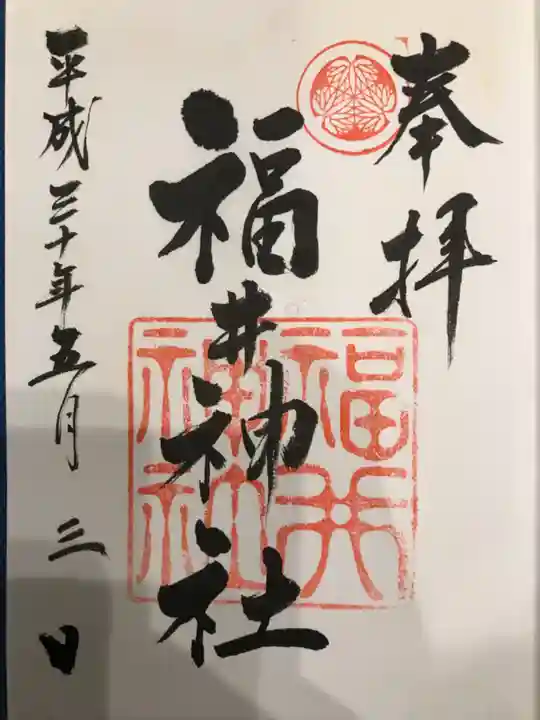 奉拝
福井神社
福井
神社
平成三十年五月三日